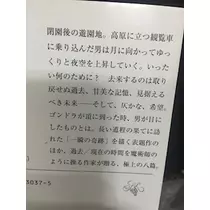 閉園後の遊園地。高原に立つ観覧車
に乗り込んだ男は月に向かってゆっ
くりと夜空を上昇していく。いった
い何のために? 去来するのは取り
戻せぬ過去、甘美な記憶、見据える
べき未来――そして、仄かな、希望。
ゴンドラが頂に到った時、男が目に
したものとは。長い道程の果てに訪
れた「一瞬の奇跡」を描く表題作の
ほか、過去／現在の時間を魔術師の
ように操る作家が贈る、極上の八篇。
3037-5